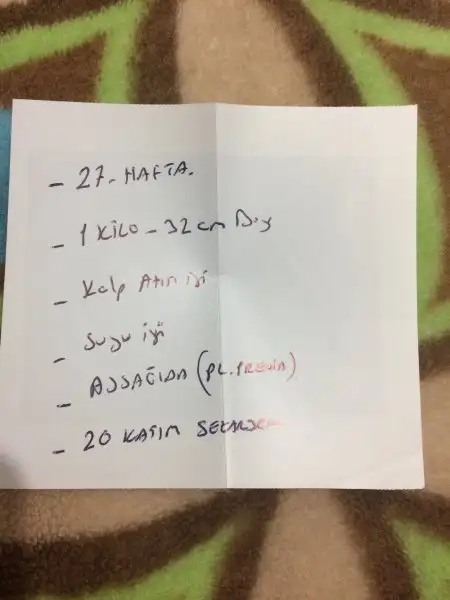 - 27. HAFTA.
- 1 KİLO - 32 cm Boy
- Kalp Atım iyi
- Suyu iyi
- AŞŞAĞIDA (PL. PREVİA)
- 20 KASIM